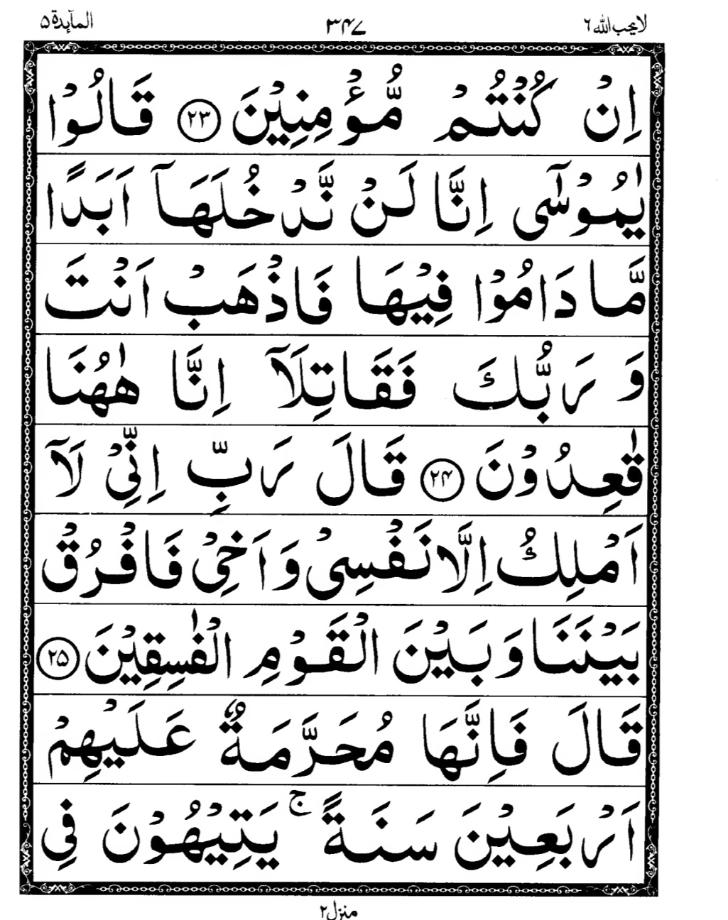 لا یحب الله ۶ ۳۴۷ المآىِٕدة ۵
اِنْ كُنْتُمْ مُّؤْمِنِیْنَ ۝۲۳ قَالُوْا
یٰمُوْسٰۤى اِنَّا لَنْ نَّدْخُلَهَاۤ اَبَدًا
مَّا دَامُوْا فِیْهَا فَاذْهَبْ اَنْتَ
وَ رَبُّكَ فَقَاتِلَاۤ اِنَّا هٰهُنَا
قٰعِدُوْنَ ۝۲۴ قَالَ رَبِّ اِنِّیْ لَاۤ
اَمْلِكُ اِلَّا نَفْسِیْ وَ اَخِیْ فَافْرُقْ
بَیْنَنَا وَ بَیْنَ الْقَوْمِ الْفٰسِقِیْنَ ۝۲۵
قَالَ فَاِنَّهَا مُحَرَّمَةٌ عَلَیْهِمْ
اَرْبَعِیْنَ سَنَةً ۚ یَتِیْهُوْنَ فِی
منزل ۲